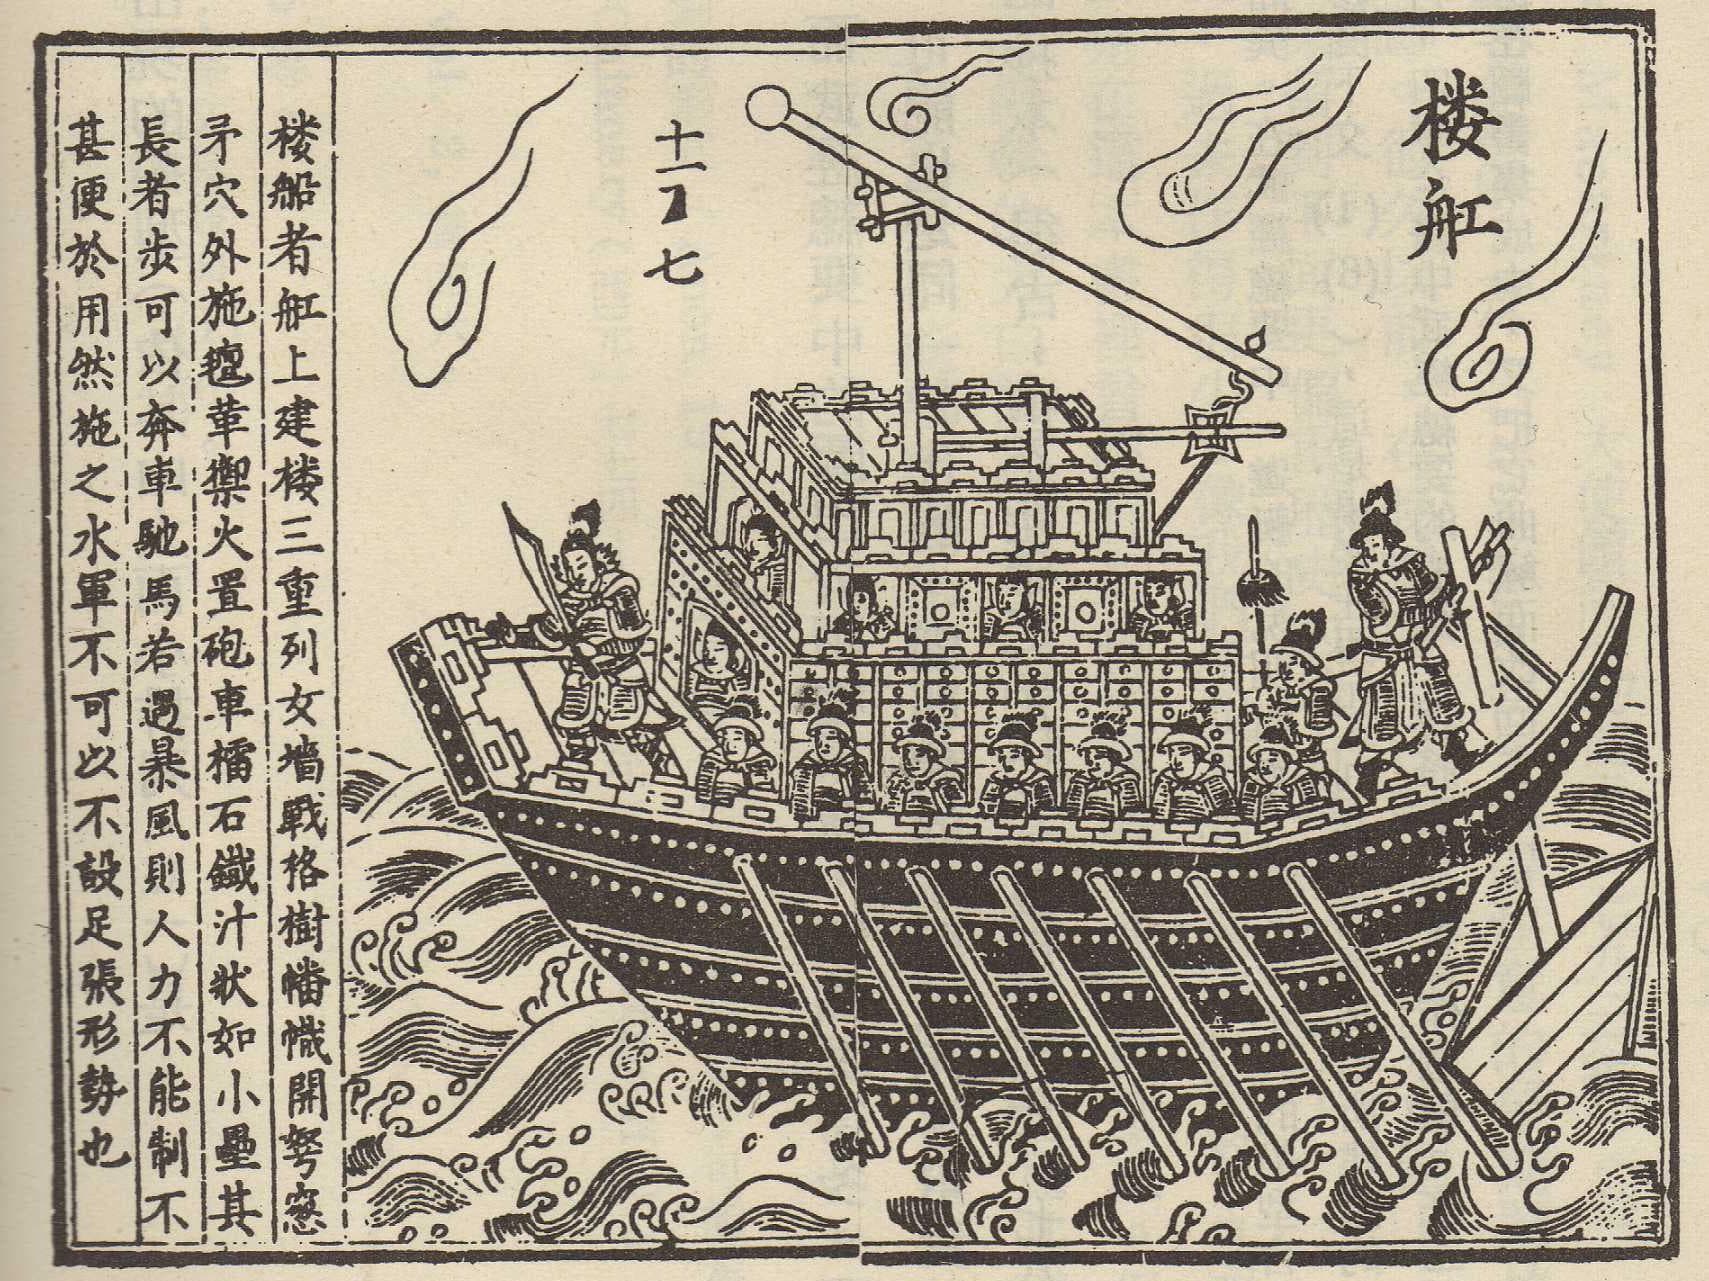 楼舡
十一
七
楼船者舡上建楼三重列女墻戰格樹幡幟開弩窓
矛穴外施氊革禦火置砲車檑石鐵汁狀如小壘其
長者步可以奔車馳馬若遇暴風則人力不能制不
甚便於用然施之水軍不可以不設足張形勢也